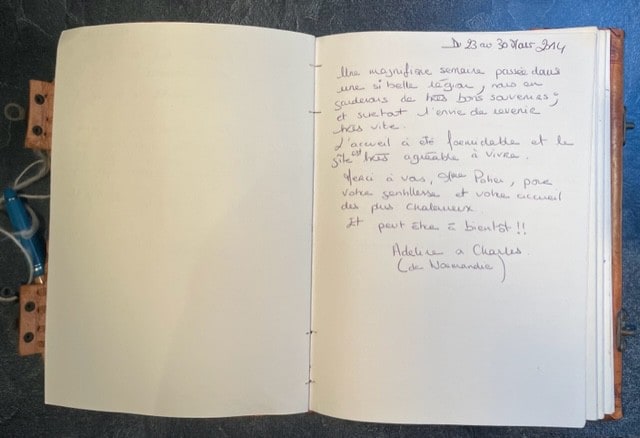 Du 23 au 30 Mars 2014
Une magnifique semaine passée dans
une si belle région, nous en
garderons de très bons souvenirs,
et surtout l'envie de revenir
très vite.
L'accueil à été formidable et le
gîte est très agréable à vivre.
Merci à vous, Mme Poher, pour
votre gentillesse et votre accueil
des plus chaleureux.
Et peut être à bientôt !!
Adeline & Charles.
(de Normandie)